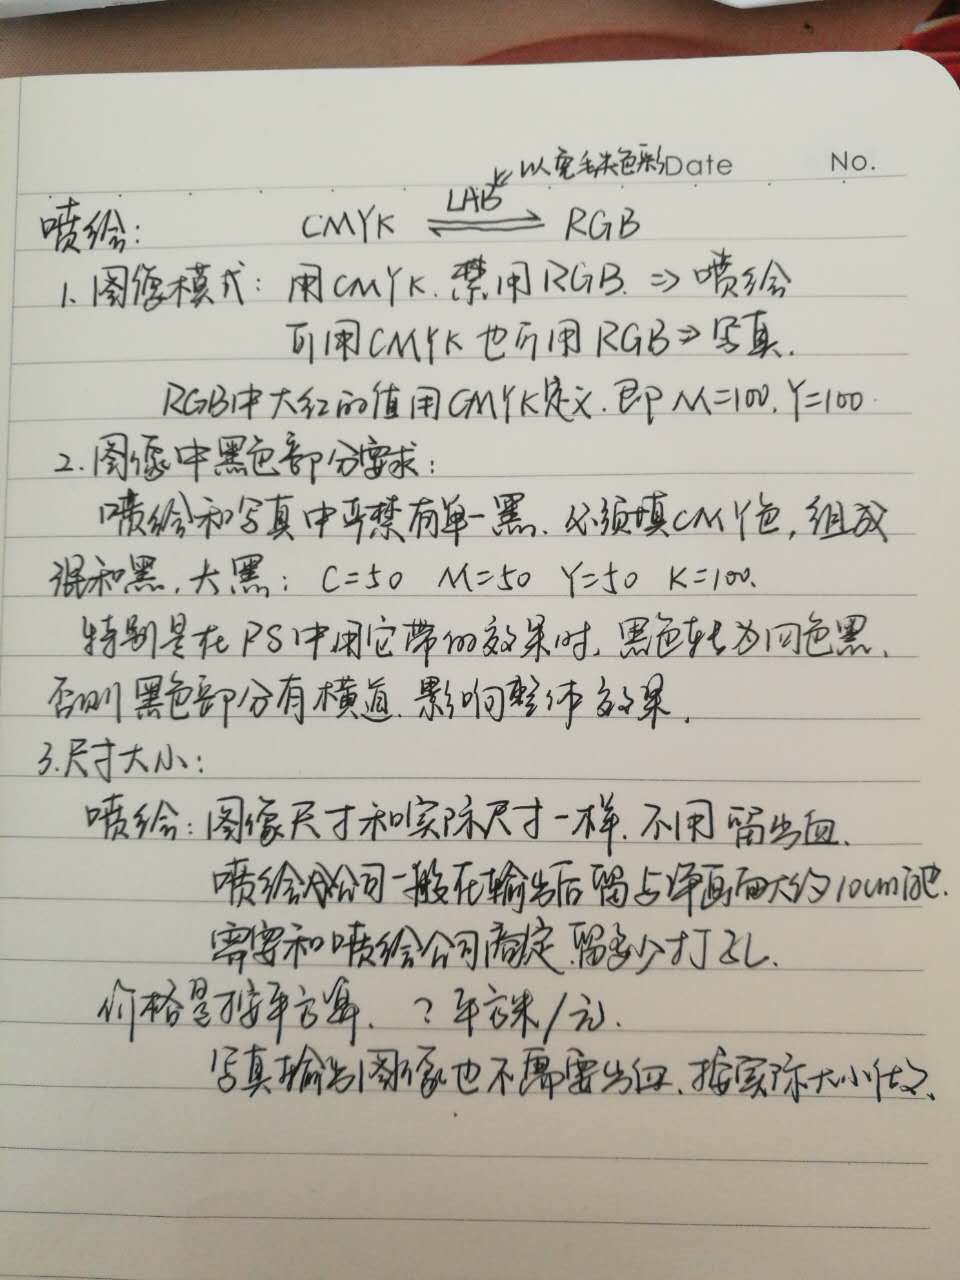 以免丢失色彩 Date No.
LAB
喷绘: CMYK ⇌ RGB
1. 图像模式: 用CMYK. 禁用RGB. ⇒ 喷绘
可用CMYK也可用RGB ⇒ 写真.
RGB中大红的值用CMYK定义. 即 M=100. Y=100.
2. 图像中黑色部分要求:
喷绘和写真中严禁有单一黑. 必须填CMY色, 组成
混和黑. 大黑: C=50 M=50 Y=50 K=100.
特别是在PS中用它带的效果时. 黑色转为四色黑.
否则黑色部分有横道. 影响整体效果.
3. 尺寸大小:
喷绘: 图像尺寸和实际尺寸一样. 不用留出血.
喷绘公司一般在输出后留与净画面大约10cm.
需要和喷绘公司商定. 留多少打孔.
价格是按平方算. ? 平方米/元.
写真输出图像也不需要出血. 按实际大小做.